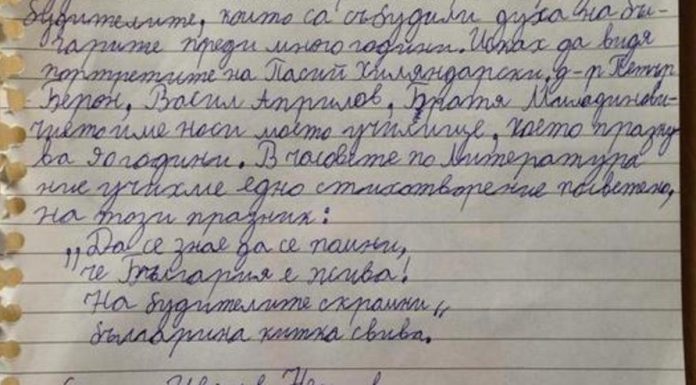 будителите, които са събудили духа на бъ-
гарите преди много години. Исках да видя
портретите на Паисий Хилендарски, д-р Петър
Берон, Васил Априлов, Братя Миладинови-
чието име носи моето училище, което празну
ва 90 години. В часовете по литература
ние учихме едно стихотворение посветено,
на този празник:
„Да се знае да се помни,
че България е жива!
На будителите скромни„
българина китка свива.